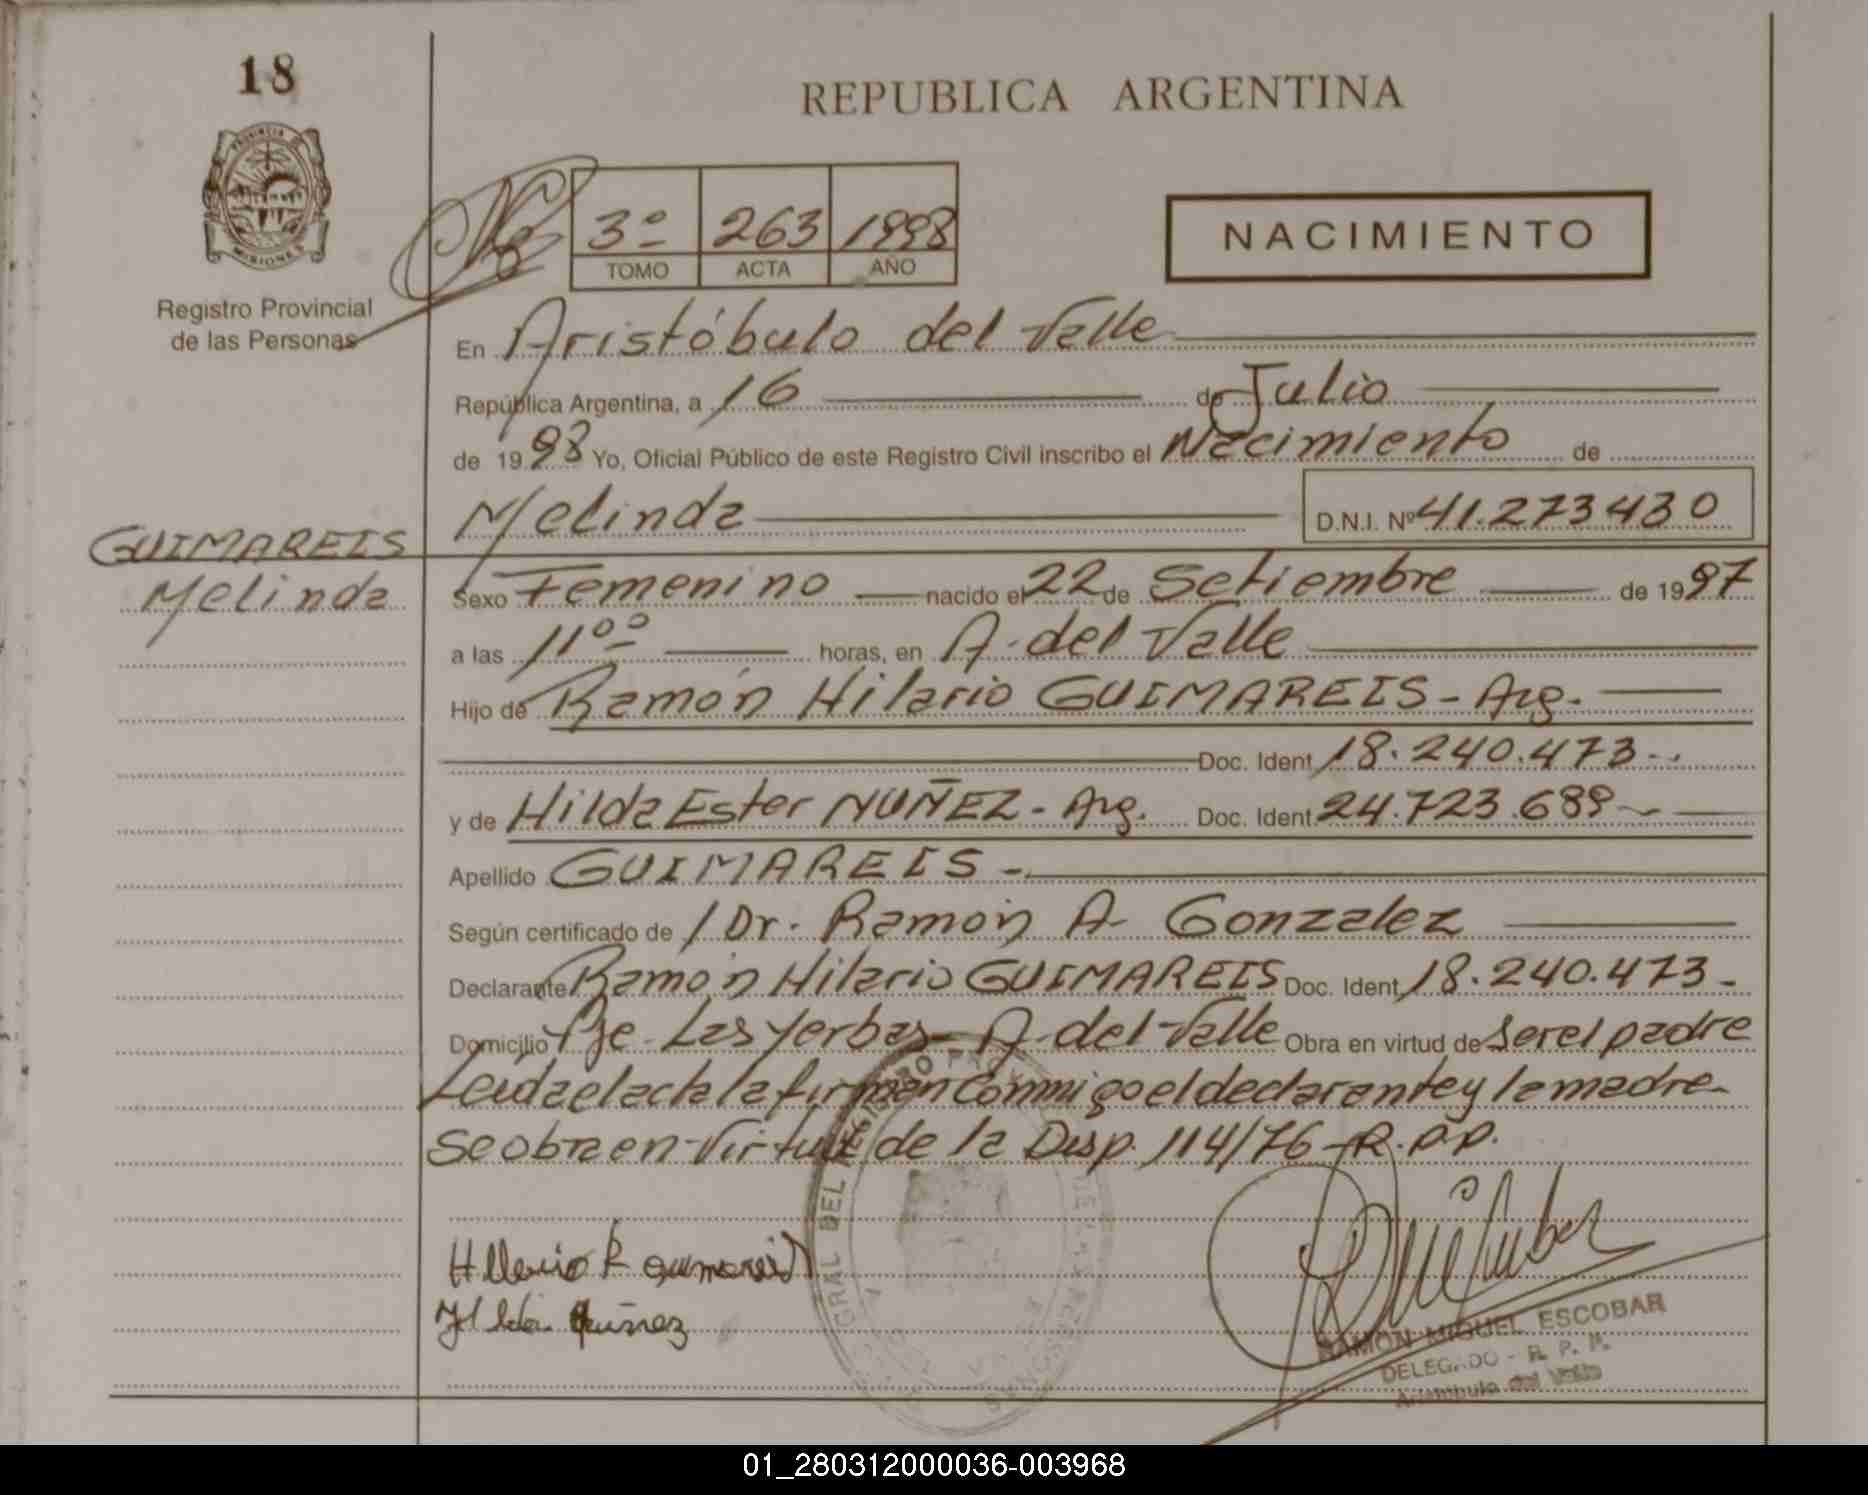 18
REPUBLICA ARGENTINA
PROVINCIA DE
MISIONES
Registro Provincial
de las Personas
3º 263 1998
TOMO ACTA AÑO
NACIMIENTO
En Aristóbulo del Valle
República Argentina, a 16 de Julio
de 1998 Yo, Oficial Público de este Registro Civil inscribo el Nacimiento de
Melinda D.N.I. Nº 41.273430
GUIMAREIS
Melinda
Sexo Femenino nacido el 22 de Setiembre de 1997
a las 11ºº horas, en A. del Valle
Hijo de Ramón Hilario GUIMAREIS - Arg.
Doc. Ident 18.240.473-
y de Hilda Ester NUÑEZ - Arg. Doc. Ident. 24.723.689
Apellido GUIMAREIS -
Según certificado de / Dr. Ramón A Gonzalez
Declarante Ramón Hilario GUIMAREIS Doc. Ident. 18.240.473-
Domicilio Pje. Las Yerbas - A. del Valle Obra en virtud de Ser el padre
Leida el acta la firman Conmigo el declarante y la madre
Se obra en Virtud de la Disp. 114/76 - R.P.P.
Hilda Nuñez
RAMON MIGUEL ESCOBAR
DELEGADO - R. P. P.
Aristóbulo del Valle
01_280312000036-003968